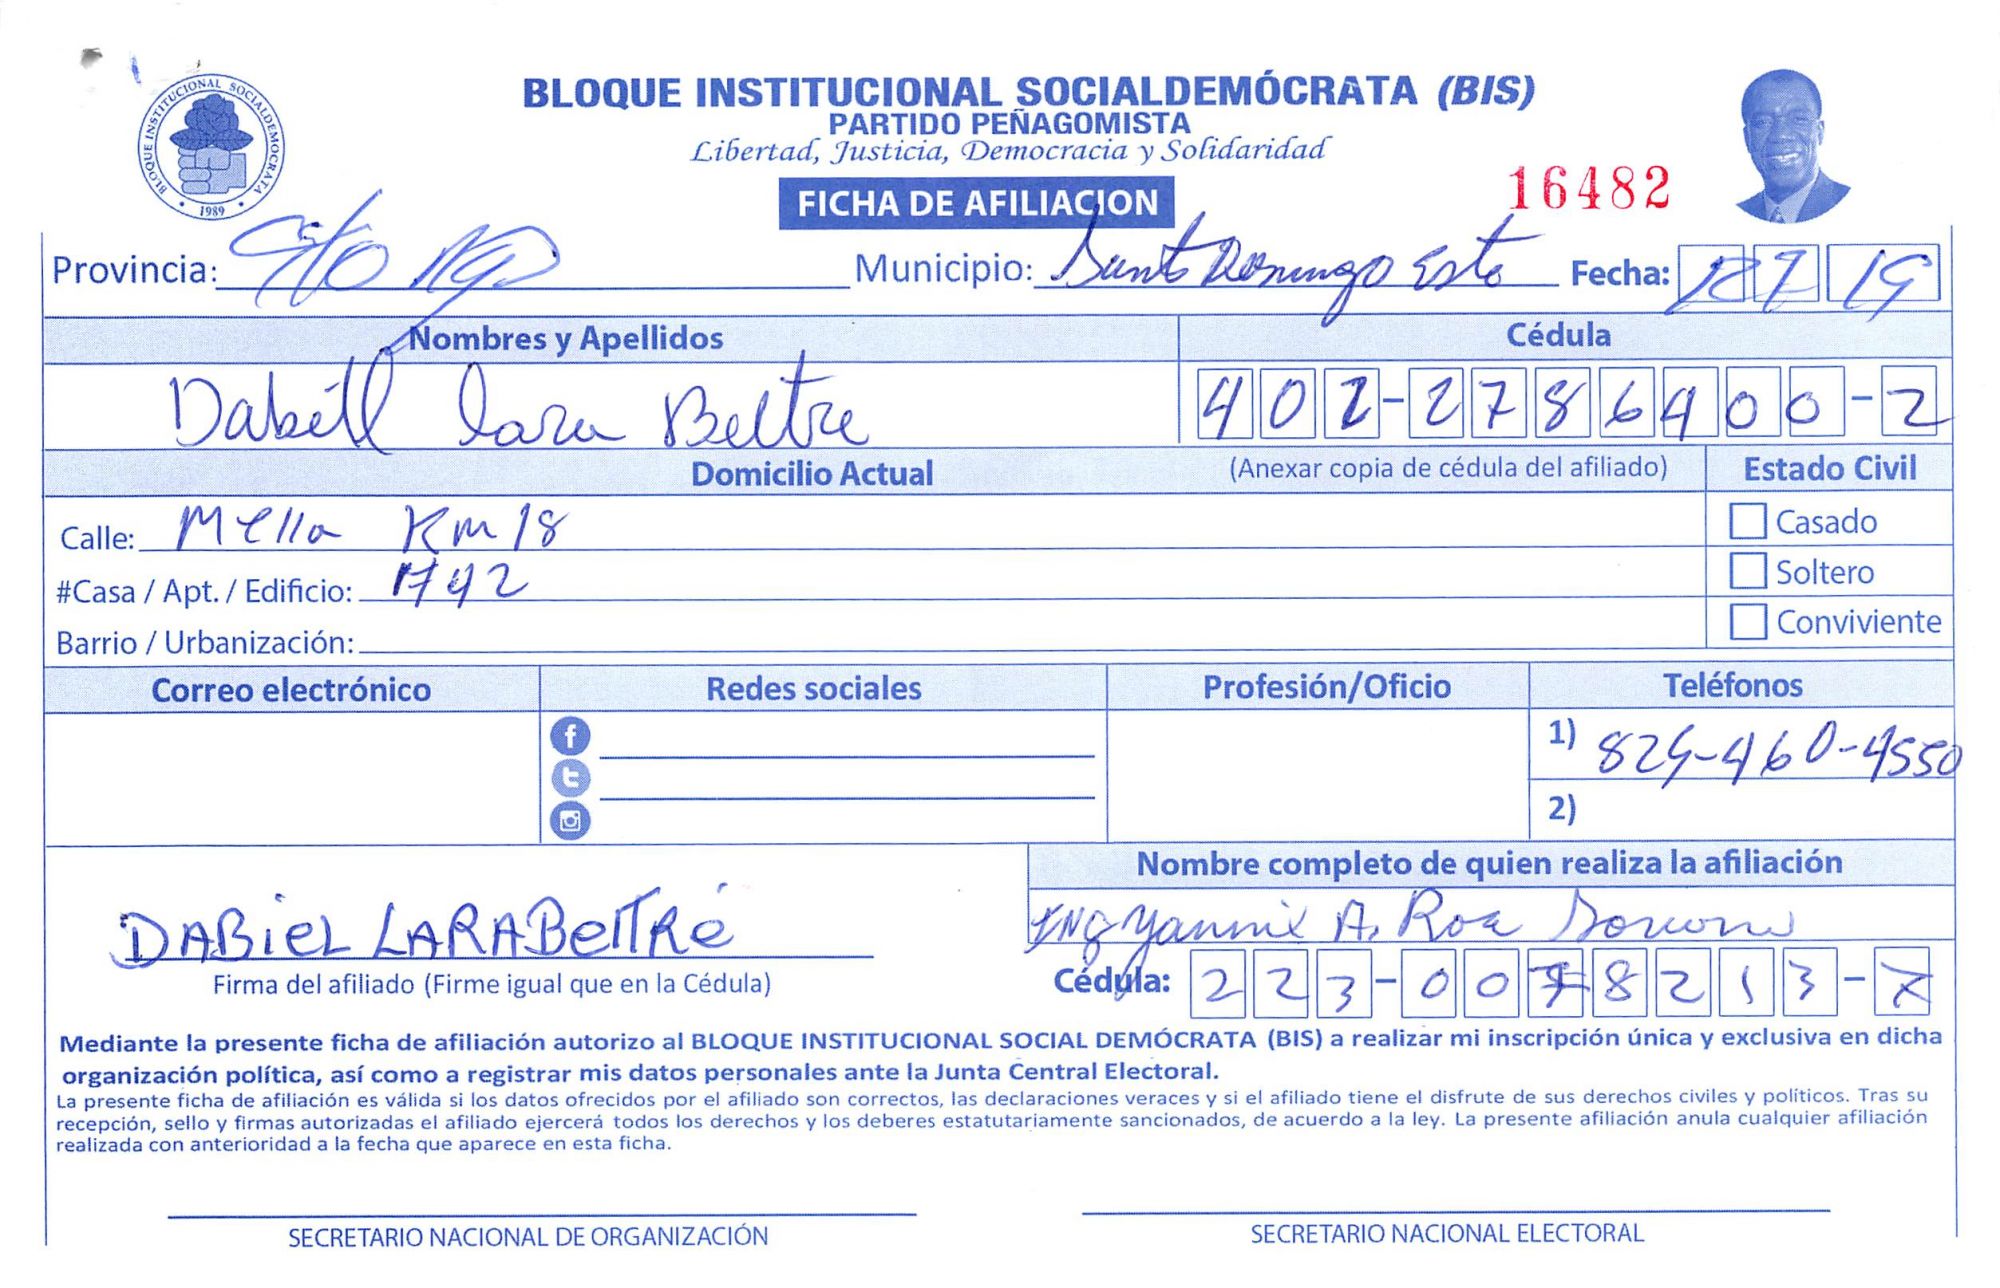 BLOQUE INSTITUCIONAL SOCIALDEMOCRATA
1989
BLOQUE INSTITUCIONAL SOCIALDEMÓCRATA (BIS)
PARTIDO PEÑAGOMISTA
Libertad, Justicia, Democracia y Solidaridad
16482
FICHA DE AFILIACION
Provincia: Sto Dgo Municipio: Santo Domingo Este Fecha: 7 19
Nombres y Apellidos Cédula
Lara Beltre 402-2786400-2
Domicilio Actual (Anexar copia de cédula del afiliado) Estado Civil
Calle: Mella Km 18 Casado
#Casa / Apt. / Edificio: 1742 Soltero
Barrio / Urbanización: Conviviente
Correo electrónico Redes sociales Profesión/Oficio Teléfonos
1) 829-460-4550
2)
Nombre completo de quien realiza la afiliación
DABiEL LARA BelTRé ING Yannix A. Roa
Firma del afiliado (Firme igual que en la Cédula) Cédula: 223-0078213-7
Mediante la presente ficha de afiliación autorizo al BLOQUE INSTITUCIONAL SOCIAL DEMÓCRATA (BIS) a realizar mi inscripción única y exclusiva en dicha
organización política, así como a registrar mis datos personales ante la Junta Central Electoral.
La presente ficha de afiliación es válida si los datos ofrecidos por el afiliado son correctos, las declaraciones veraces y si el afiliado tiene el disfrute de sus derechos civiles y políticos. Tras su
recepción, sello y firmas autorizadas el afiliado ejercerá todos los derechos y los deberes estatutariamente sancionados, de acuerdo a la ley. La presente afiliación anula cualquier afiliación
realizada con anterioridad a la fecha que aparece en esta ficha.
SECRETARIO NACIONAL DE ORGANIZACIÓN SECRETARIO NACIONAL ELECTORAL